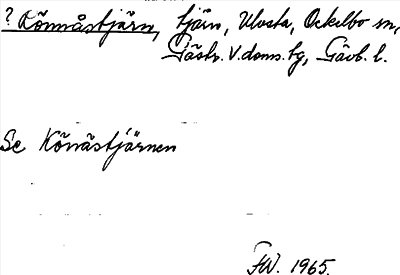 ? Könnåstjärn, tjärn, Ulvsta, Ockelbo sn,
Gästr. V. doms. tg, Gävb. l.
Se Könåstjärnen
FW. 1965.